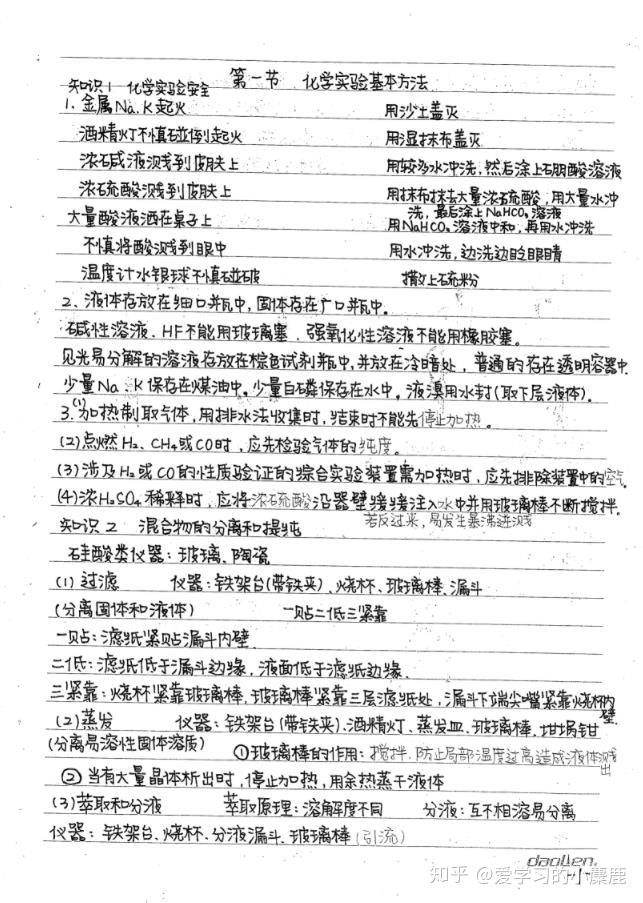 第一节 化学实验基本方法
知识1 化学实验安全
1. 金属Na、K起火 用沙土盖灭
酒精灯不慎碰倒起火 用湿抹布盖灭
浓碱液溅到皮肤上 用较多水冲洗,然后涂上硼酸溶液
浓硫酸溅到皮肤上 用抹布抹去大量浓硫酸,用大量水冲洗,最后涂上NaHCO₃溶液
大量酸液洒在桌子上 用NaHCO₃溶液中和,再用水冲洗
不慎将酸溅到眼中 用水冲洗,边洗边眨眼睛
温度计水银球不慎碰破 撒上硫粉
2、液体存放在细口瓶中,固体存在广口瓶中。
碱性溶液、HF不能用玻璃塞,强氧化性溶液不能用橡胶塞。
见光易分解的溶液存放在棕色试剂瓶中,并放在冷暗处,普通的存在透明容器中
少量Na、K保存在煤油中。少量白磷保存在水中。液溴用水封(取下层液体).
3.(1)加热制取气体,用排水法收集时,结束时不能先停止加热。
(2)点燃H₂、CH₄或CO时,应先检验气体的纯度。
(3)涉及H₂或CO的性质验证的综合实验装置需加热时,应先排除装置中的空气.
(4)浓H₂SO₄稀释时,应将浓硫酸沿器壁缓缓注入水中并用玻璃棒不断搅拌.
若反过来,易发生暴沸迸溅
知识2 混合物的分离和提纯
硅酸类仪器:玻璃、陶瓷
(1)过滤 仪器:铁架台(带铁夹)、烧杯、玻璃棒、漏斗
(分离固体和液体) 一贴二低三紧靠
一贴:滤纸紧贴漏斗内壁.
二低:滤纸低于漏斗边缘,液面低于滤纸边缘.
三紧靠:烧杯紧靠玻璃棒,玻璃棒紧靠三层滤纸处,漏斗下端尖嘴紧靠烧杯内壁.
(2)蒸发 仪器:铁架台(带铁夹)、酒精灯、蒸发皿、玻璃棒、坩埚钳
(分离易溶性固体溶质) ①玻璃棒的作用:搅拌,防止局部温度过高造成液体溅出
②当有大量晶体析出时,停止加热,用余热蒸干液体
(3)萃取和分液 萃取原理:溶解度不同 分液:互不相溶易分离
仪器:铁架台、烧杯、分液漏斗、玻璃棒(引流)
daollen
知乎 @爱学习的小麋鹿